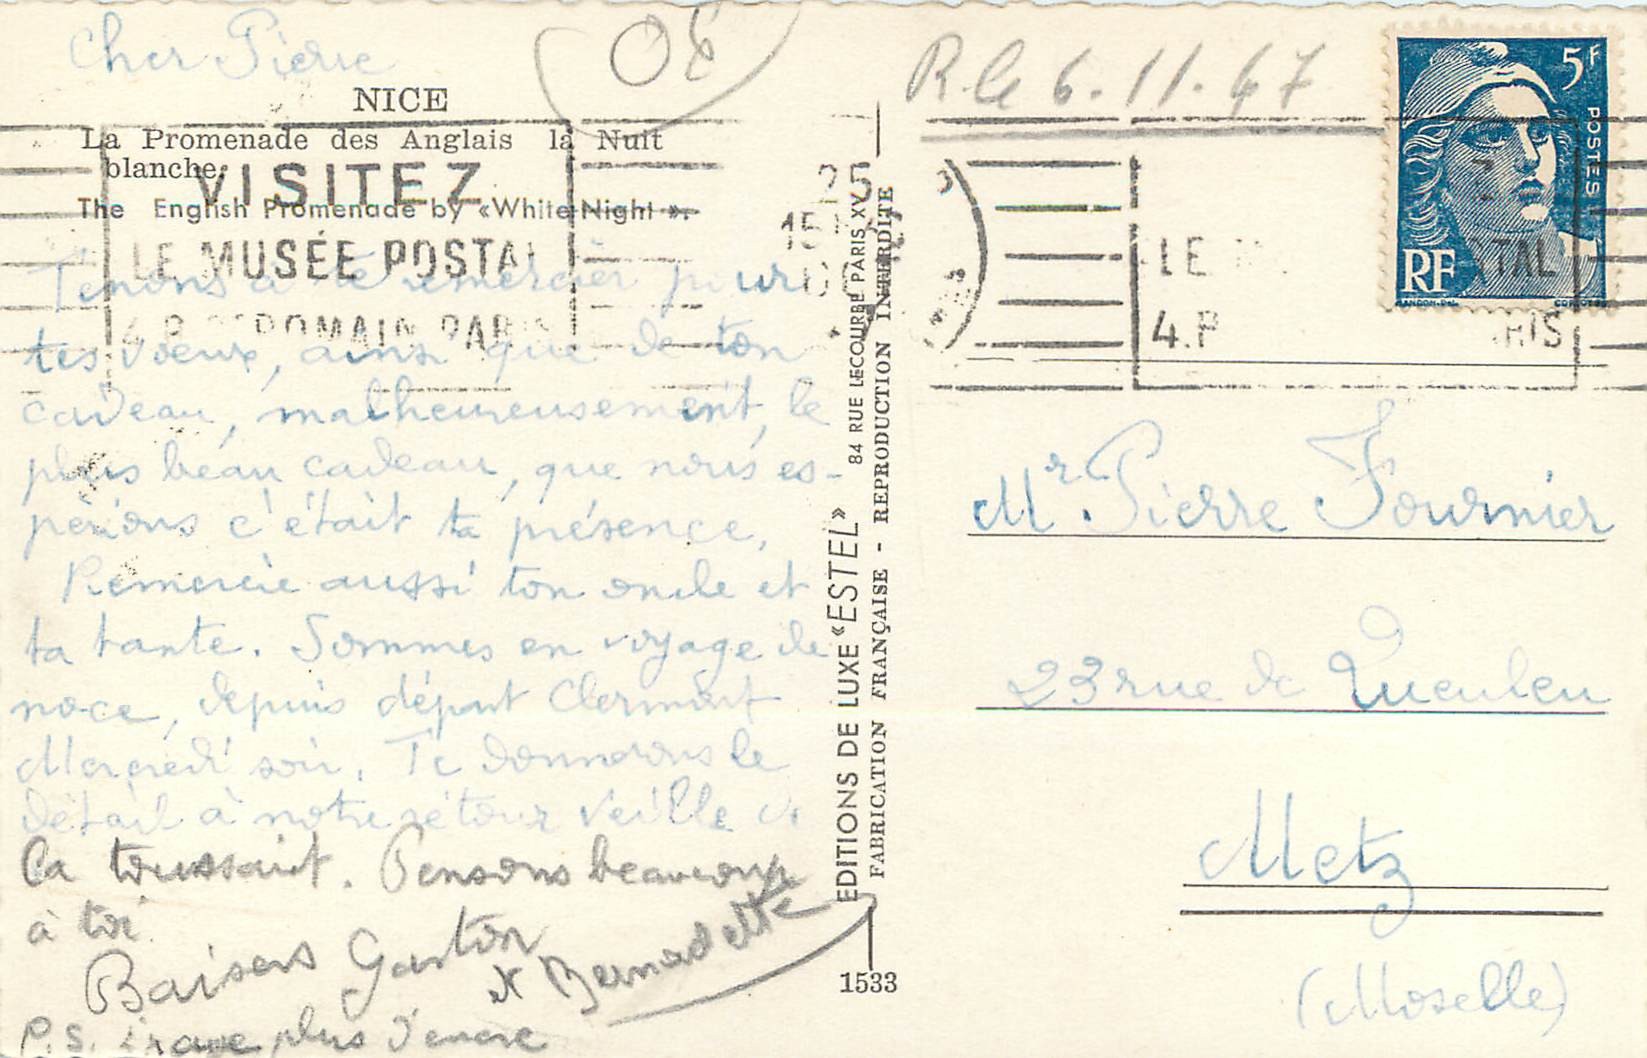 Cher Pierre
08
NICE
La Promenade des Anglais la Nuit
blanche.
The English Promenade by «White Night».
VISITEZ
LE MUSÉE POSTAL
4.R ST ROMAIN PARIS
Tenons à te remercier pour
tes voeux, ainsi que de ton
cadeau, malheureusement, le
plus beau cadeau, que nous es-
périons c'était ta présence,
Remercie aussi ton oncle et
ta tante. Sommes en voyage de
noce, depuis départ Clermont
Mercredi soir. Te donnerons le
détail à notre retour veille de
la toussaint. Pensons beaucoup
à toi
Baisers Gaston
et Bernadette
P.S. plus d'encre
EDITIONS DE LUXE «ESTEL» 84 RUE LECOURBE PARIS XV
FABRICATION FRANÇAISE - REPRODUCTION INTERDITE
1533
R. le 6.11.47
25
5F
POSTES
RF
LE TAL
4.P RIS
Mr. Pierre Fournier
23 rue de Queuleu
Metz
(Moselle)